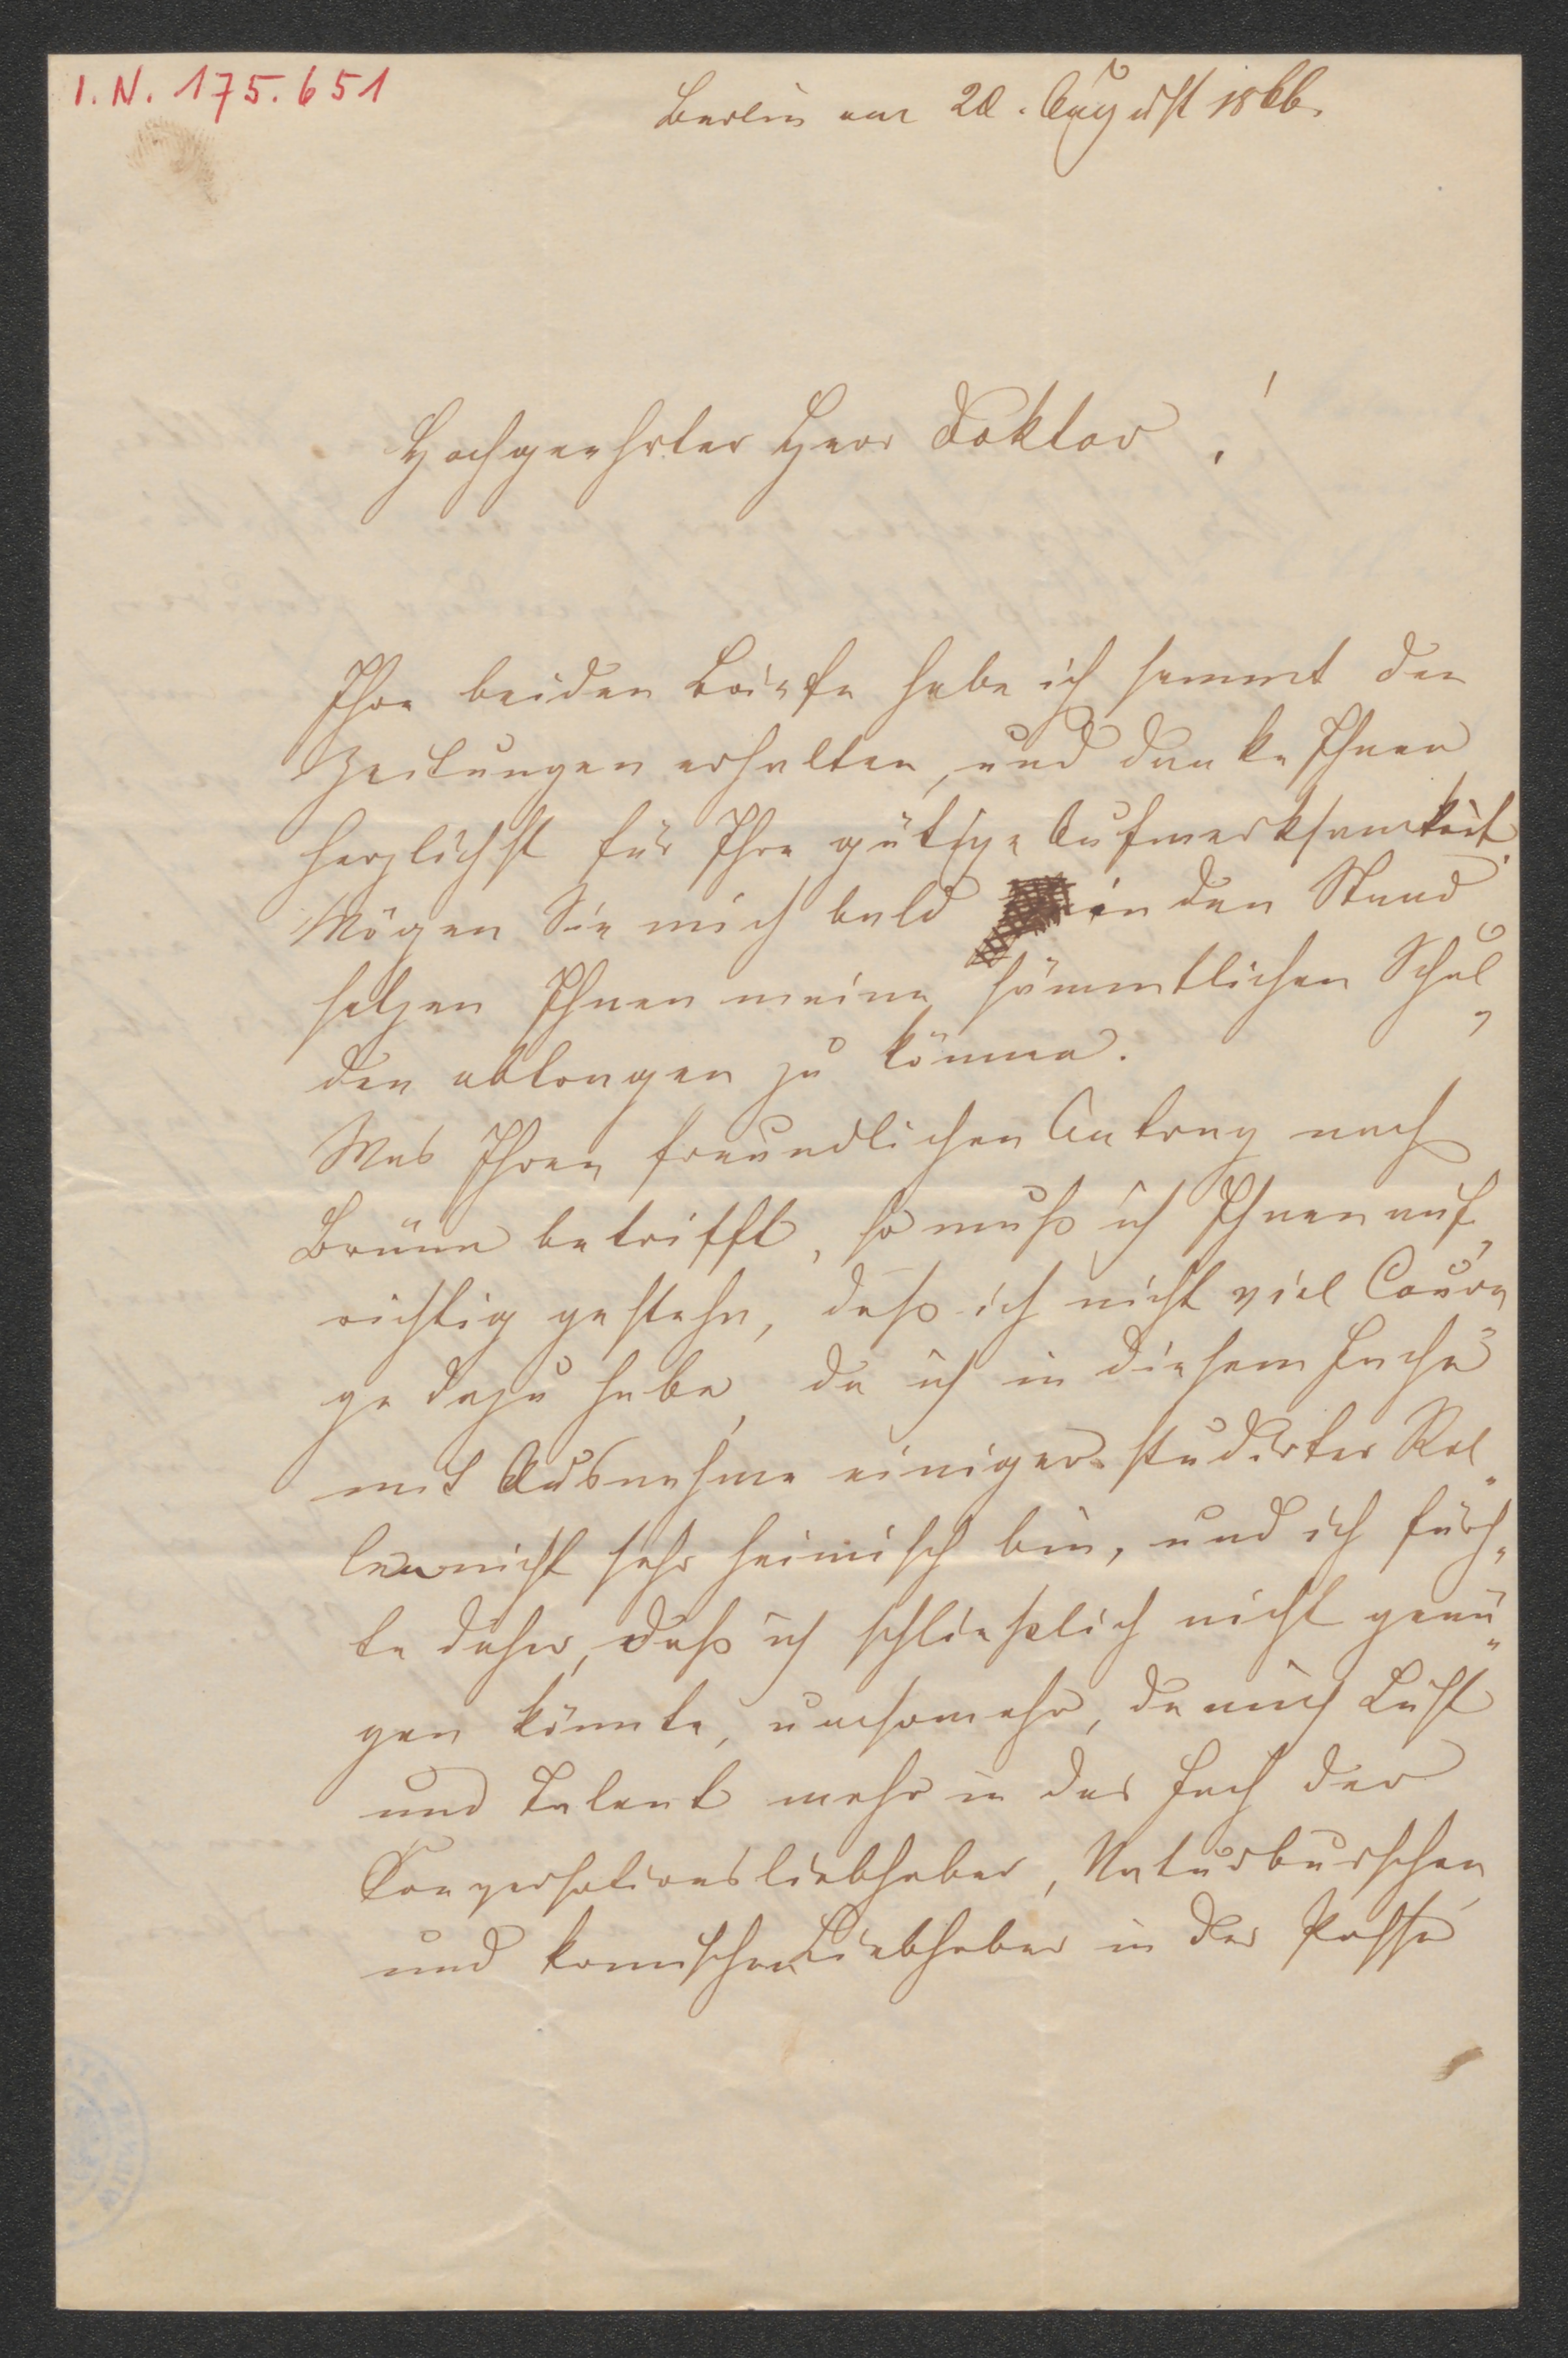 I.N. 175.651
Berlin am 20. August 1866.
Hochgeehrter Herr Doktor!
Ihre beiden Briefe habe ich sammt den
Zeitungen erhalten, und danke Ihnen
herzlichst für Ihre gütige Aufmerksamkeit.
Mögen Sie mich bald in den Stand
setzen Ihnen meine sämmtlichen Schul„
den abtragen zu können.
Was Ihren freundlichen Antrag nach
Brünn betrifft, so muß ich Ihnen auf„
richtig gestehn, daß ich nicht viel Coura„
ge dazu habe, da ich in diesem Fache
mit Ausnahme einiger studirter Rol„
len nicht sehr heimisch bin, und ich fürch„
te daher, daß ich schließlich nicht genü„
gen könnte, umsomehr, da mich Lust
und Talent mehr in das Fach der
Conversationsliebhaber, Naturburschen
und komischen Liebhaber in der Posse